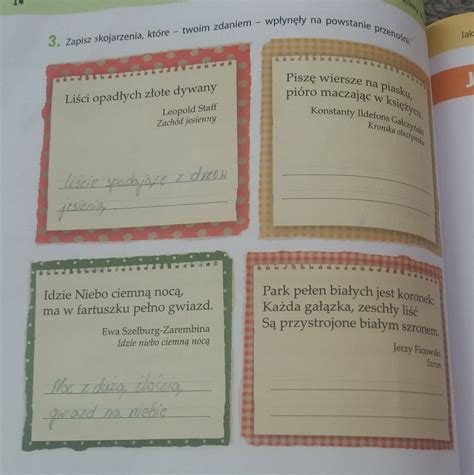 14
3. Zapisz skojarzenia, które – twoim zdaniem – wpłynęły na powstanie przenośni.
Liści opadłych złote dywany
Leopold Staff
Zachód jesienny
liście spadające z drzew
jesienią,
Piszę wiersze na piasku,
pióro maczając w księżycu.
Konstanty Ildefons Gałczyński
Kronika olsztyńska
Idzie Niebo ciemną nocą,
ma w fartuszku pełno gwiazd.
Ewa Szelburg-Zarembina
Idzie niebo ciemną nocą
z dużą ilością
gwiazd na niebie
Park pełen białych jest koronek:
Każda gałązka, zeschły liść
Są przystrojone białym szronem.
Jerzy Ficowski
Szron
Jak